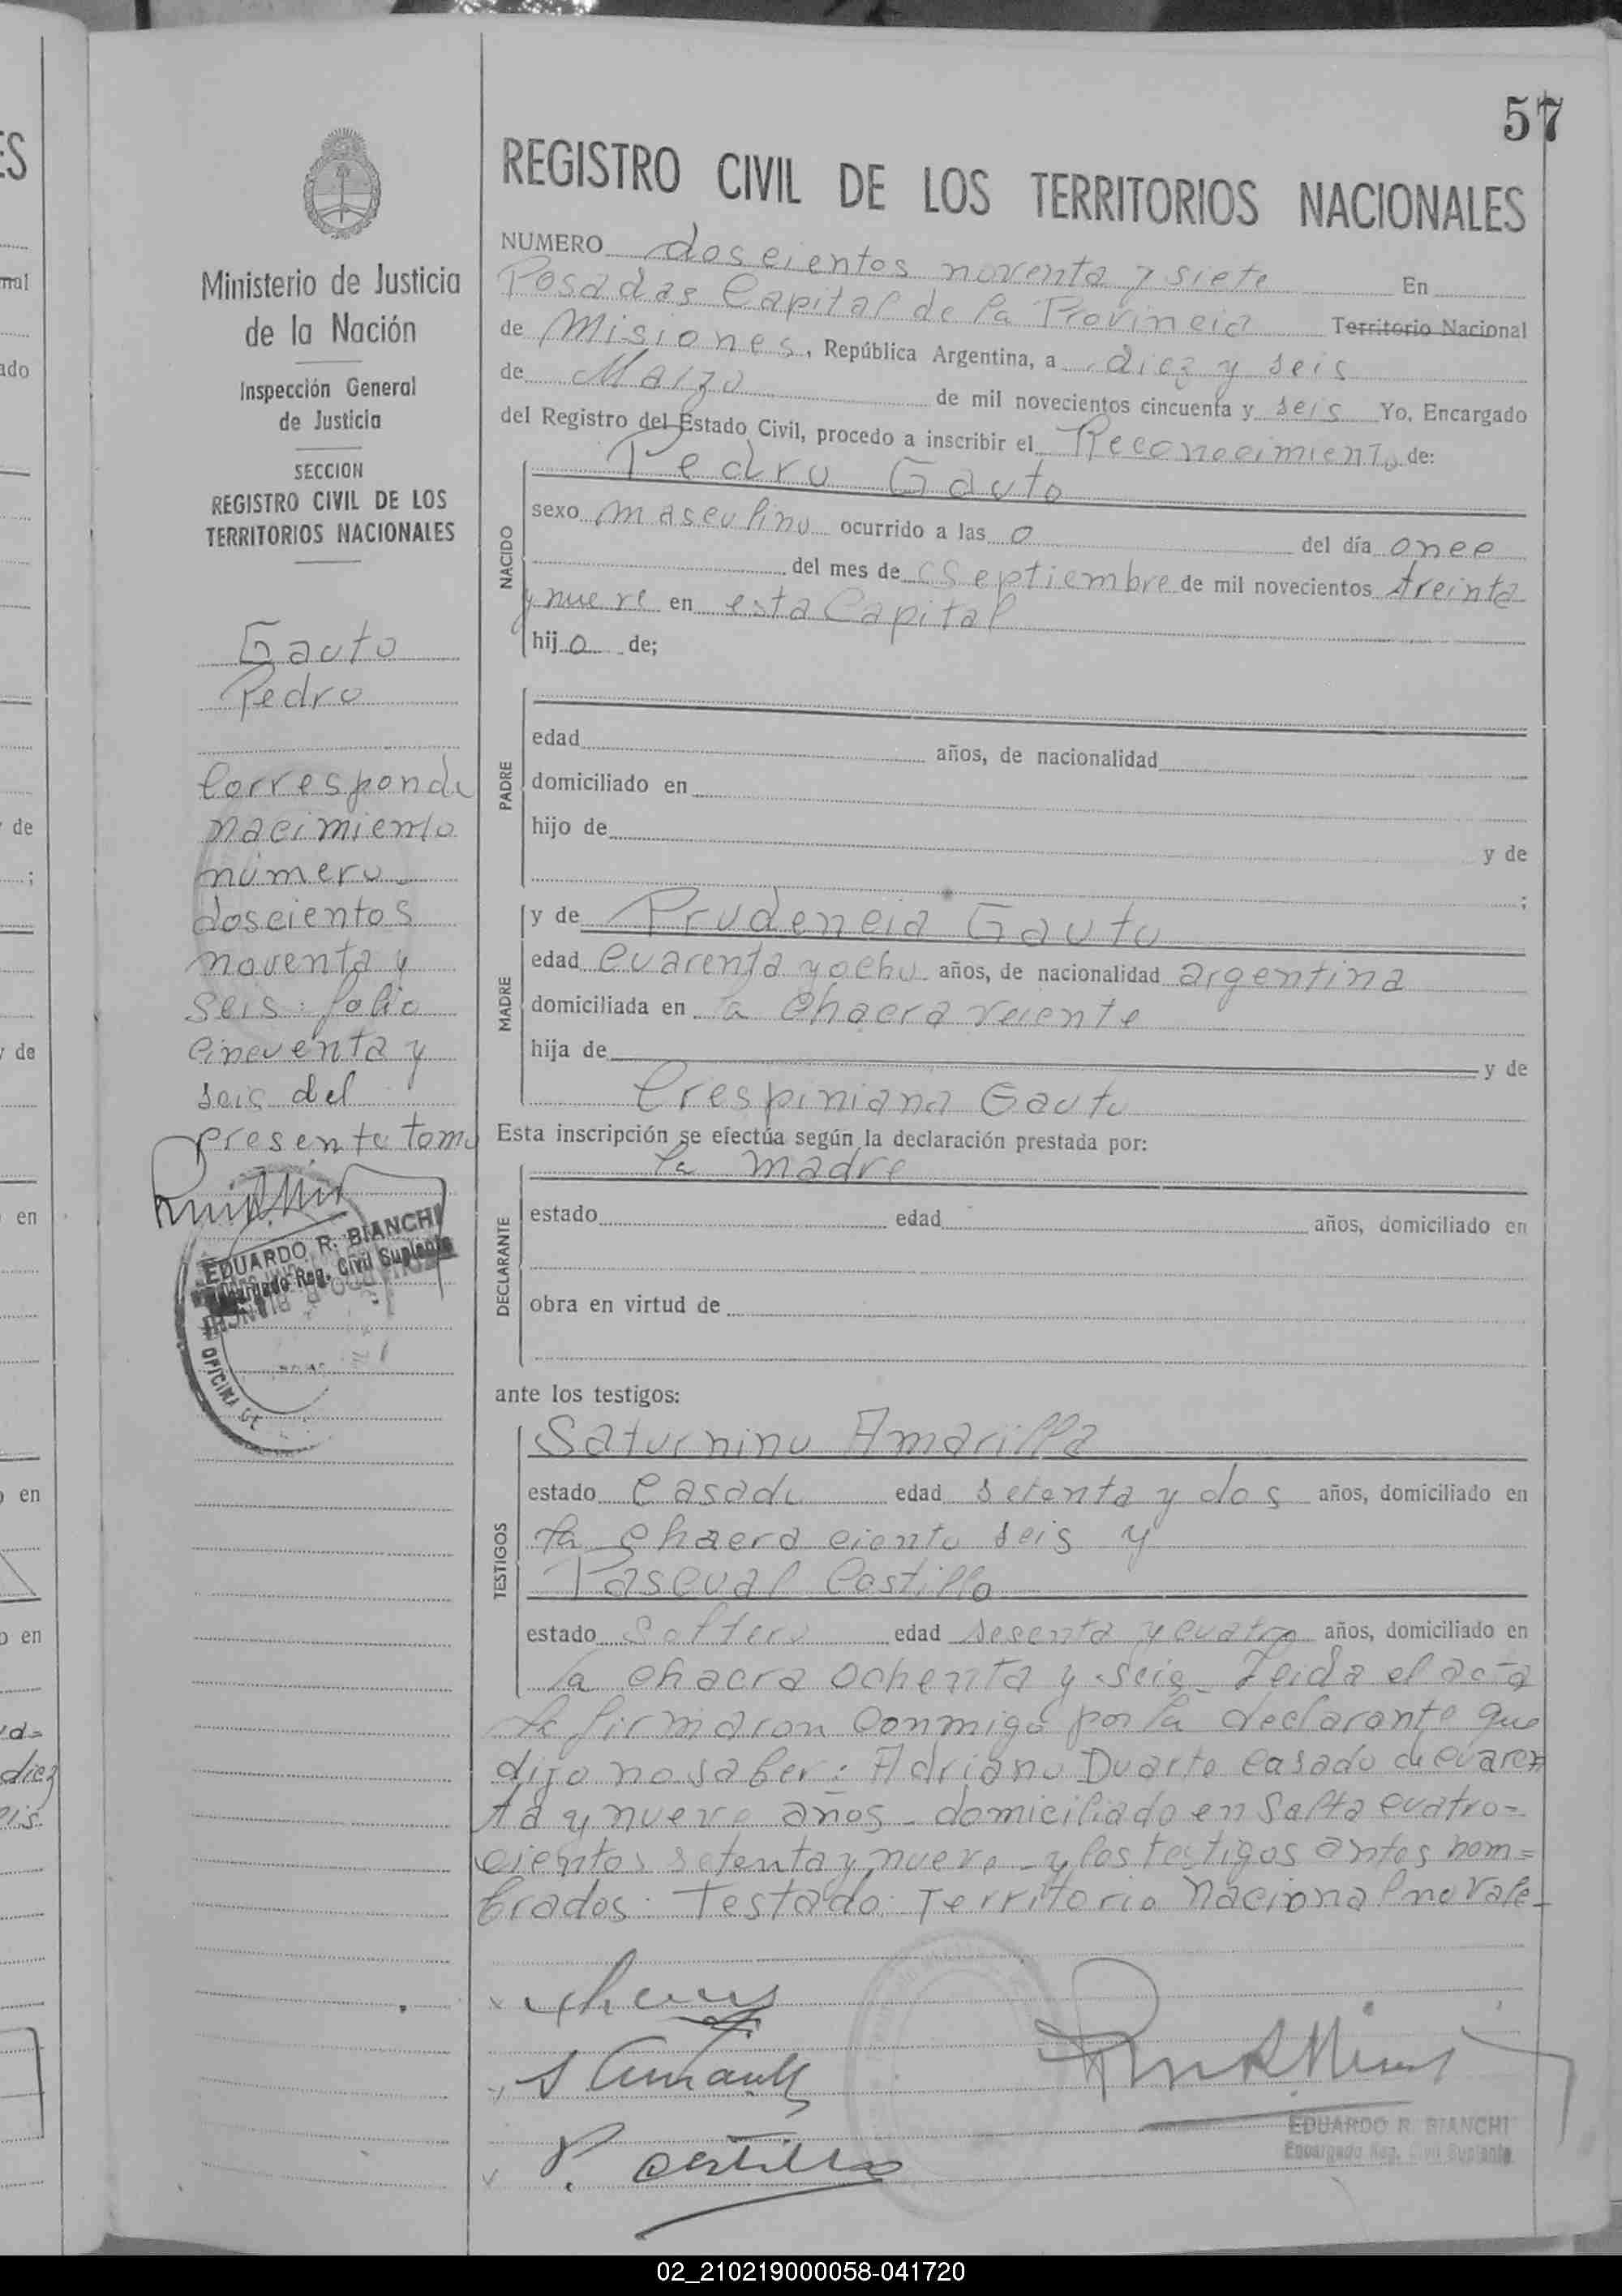 57
REGISTRO CIVIL DE LOS TERRITORIOS NACIONALES
Ministerio de Justicia
de la Nación
Inspección General
de Justicia
SECCION
REGISTRO CIVIL DE LOS
TERRITORIOS NACIONALES
Gauto
Pedro
Corresponde
nacimiento
número
doscientos
noventa y
seis: folio
cincuenta y
seis del
presente tomo
EDUARDO R. BIANCHI
Encargado Reg. Civil Suplente
OFICINA DE
NUMERO doscientos noventa y siete En
Posadas Capital de la Provincia Territorio Nacional
de Misiones, República Argentina, a diez y seis
de Marzo de mil novecientos cincuenta y seis Yo, Encargado
del Registro del Estado Civil, procedo a inscribir el Reconocimiento de:
NACIDO
Pedro Gauto
sexo masculino ocurrido a las 0 del día once
del mes de Septiembre de mil novecientos treinta
y nueve en esta Capital
hijo de;
PADRE
edad años, de nacionalidad
domiciliado en
hijo de y de
;
MADRE
y de Prudencia Gauto
edad cuarenta y ocho años, de nacionalidad argentina
domiciliada en la chacra veiente
hija de y de
Crespiniana Gauto
Esta inscripción se efectúa según la declaración prestada por:
DECLARANTE
la madre
estado edad años, domiciliado en
obra en virtud de
ante los testigos:
TESTIGOS
Saturnino Amarilla
estado casado edad setenta y dos años, domiciliado en
la chacra ciento seis y
Pascual Castillo
estado Soltero edad sesenta y cuatro años, domiciliado en
la chacra ochenta y seis. Leida el acta
la firmaron conmigo por la declarante que
dijo no saber: Adriano Duarte casado de cuaren
ta y nueve años - domiciliado en Salta cuatro=
cientos setenta y nueve - y los testigos antes nom=
brados: Testado: Territorio Nacional no vale-
P. Castillo
EDUARDO R. BIANCHI
Encargado Reg. Civil Suplente
02_210219000058-041720